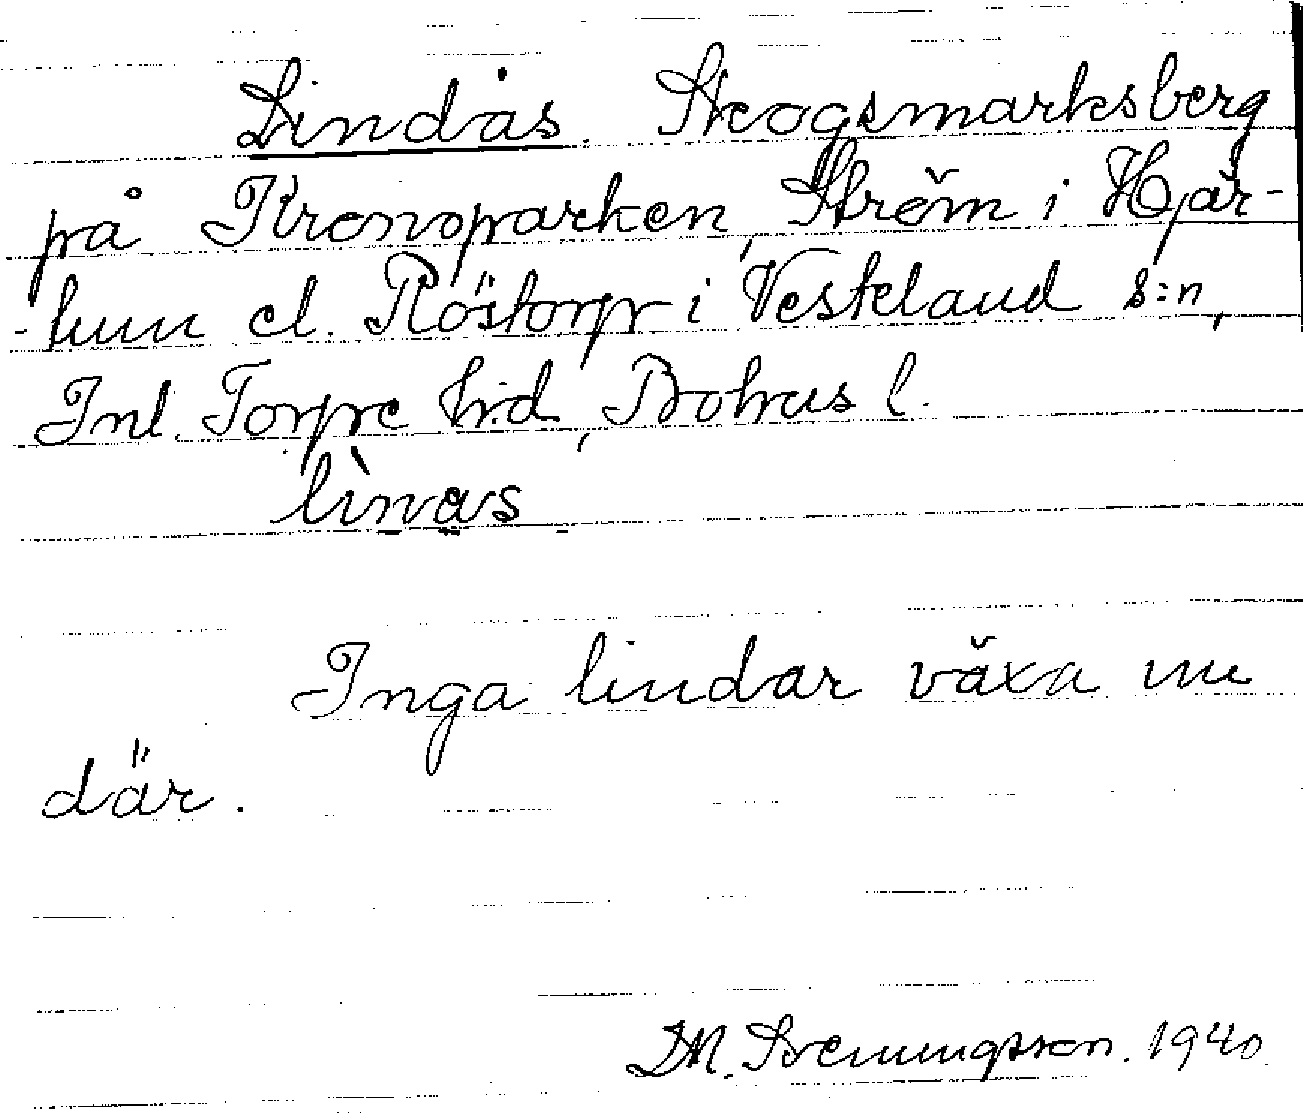 Lindås. Skogsmarksberg
på Kronoparken, Ström i Hjär-
-tum el. Röstorp i Vesteland s:n,
Inl. Torpe h:d, Bohus l.
lìnas
Inga lindar växa nu
där.
M. Svenungsson. 1940